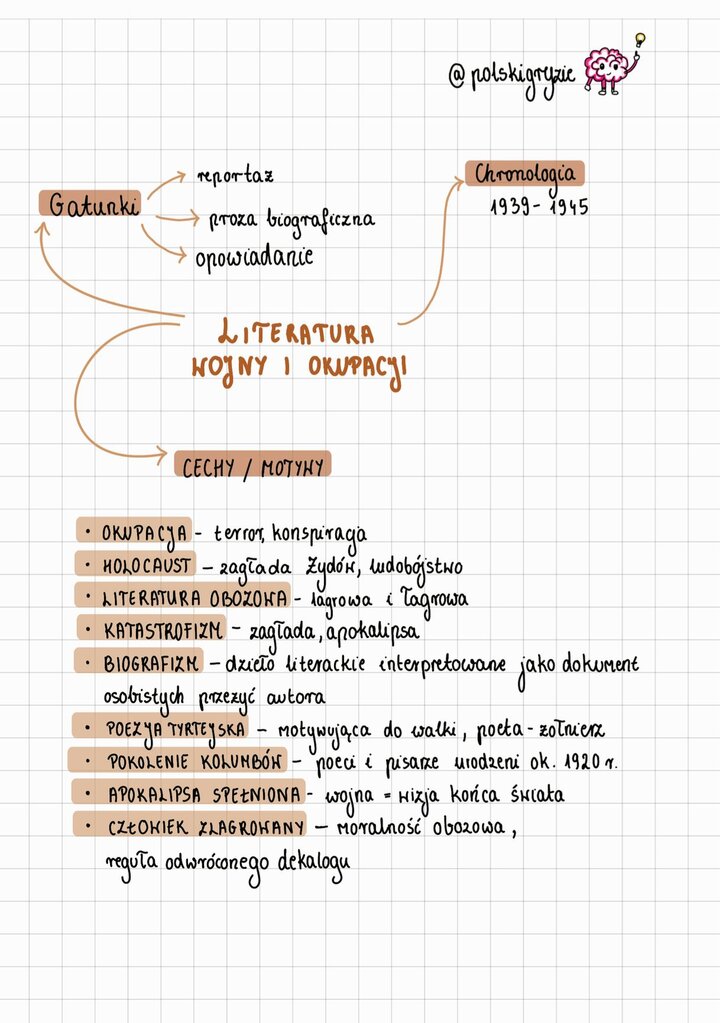 @polskigryzie
Chronologia
1939 - 1945
Gatunki
reportaż
proza biograficzna
opowiadanie
LITERATURA
WOJNY I OKUPACJI
CECHY / MOTYWY
• OKUPACJA - terror, konspiracja
• HOLOCAUST – zagłada Żydów, ludobójstwo
• LITERATURA OBOZOWA - lagrowa i łagrowa
• KATASTROFIZM - zagłada, apokalipsa
• BIOGRAFIZM – dzieło literackie interpretowane jako dokument
osobistych przeżyć autora
• POEZJA TYRTEJSKA – motywująca do walki, poeta-żołnierz
• POKOLENIE KOLUMBÓW - poeci i pisarze urodzeni ok. 1920 r.
• APOKALIPSA SPEŁNIONA - wojna = wizja końca świata
• CZŁOWIEK ZLAGROWANY – moralność obozowa,
reguła odwróconego dekalogu